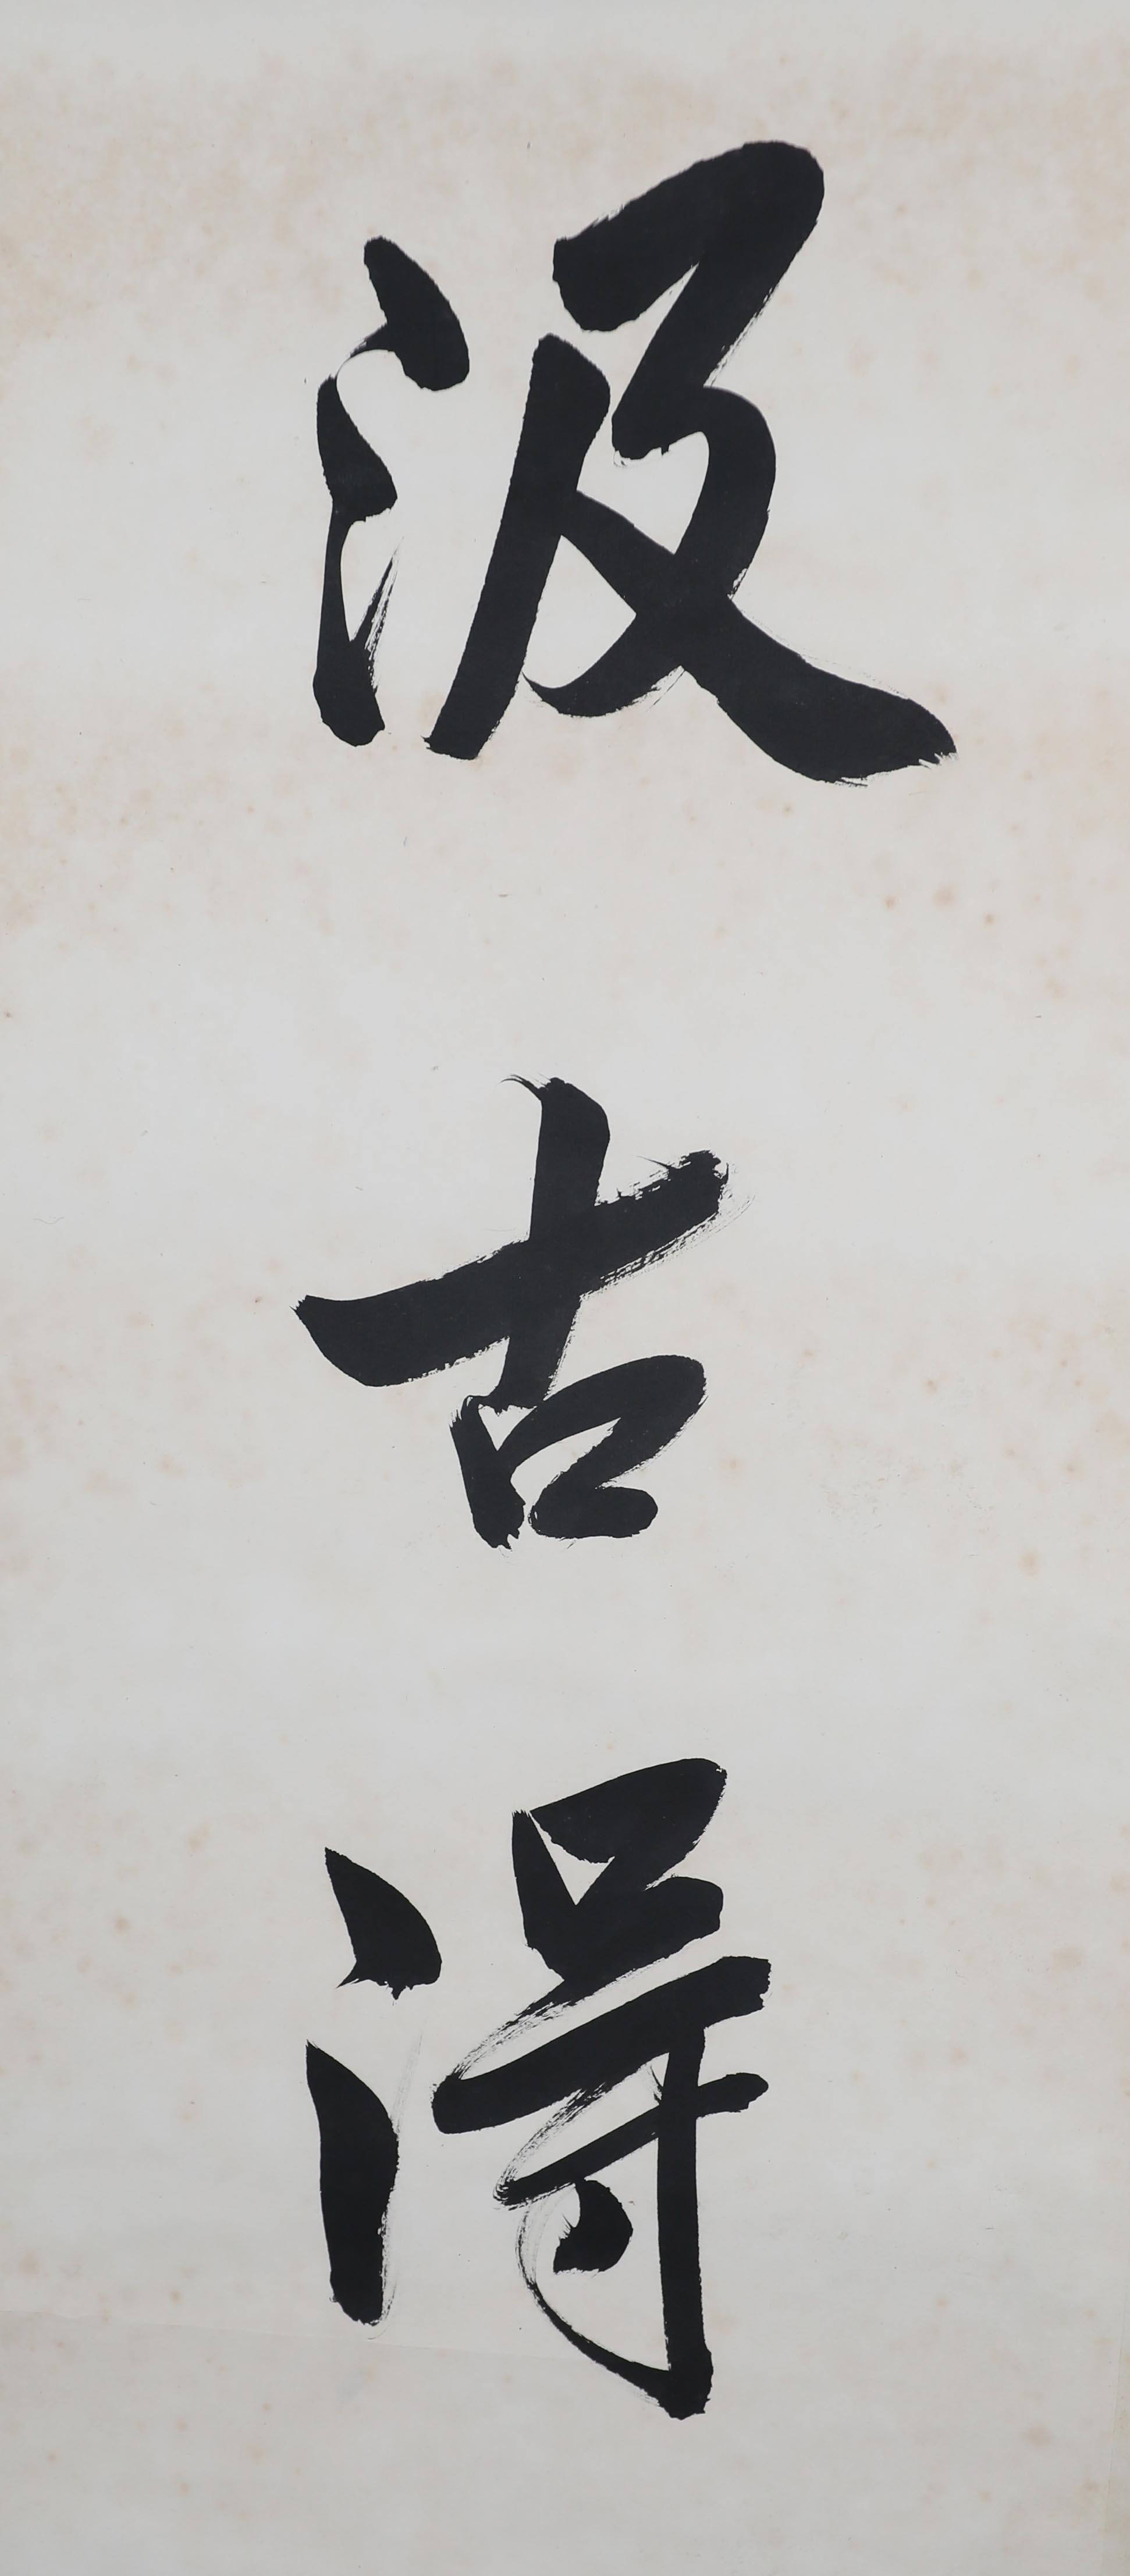 汲古得